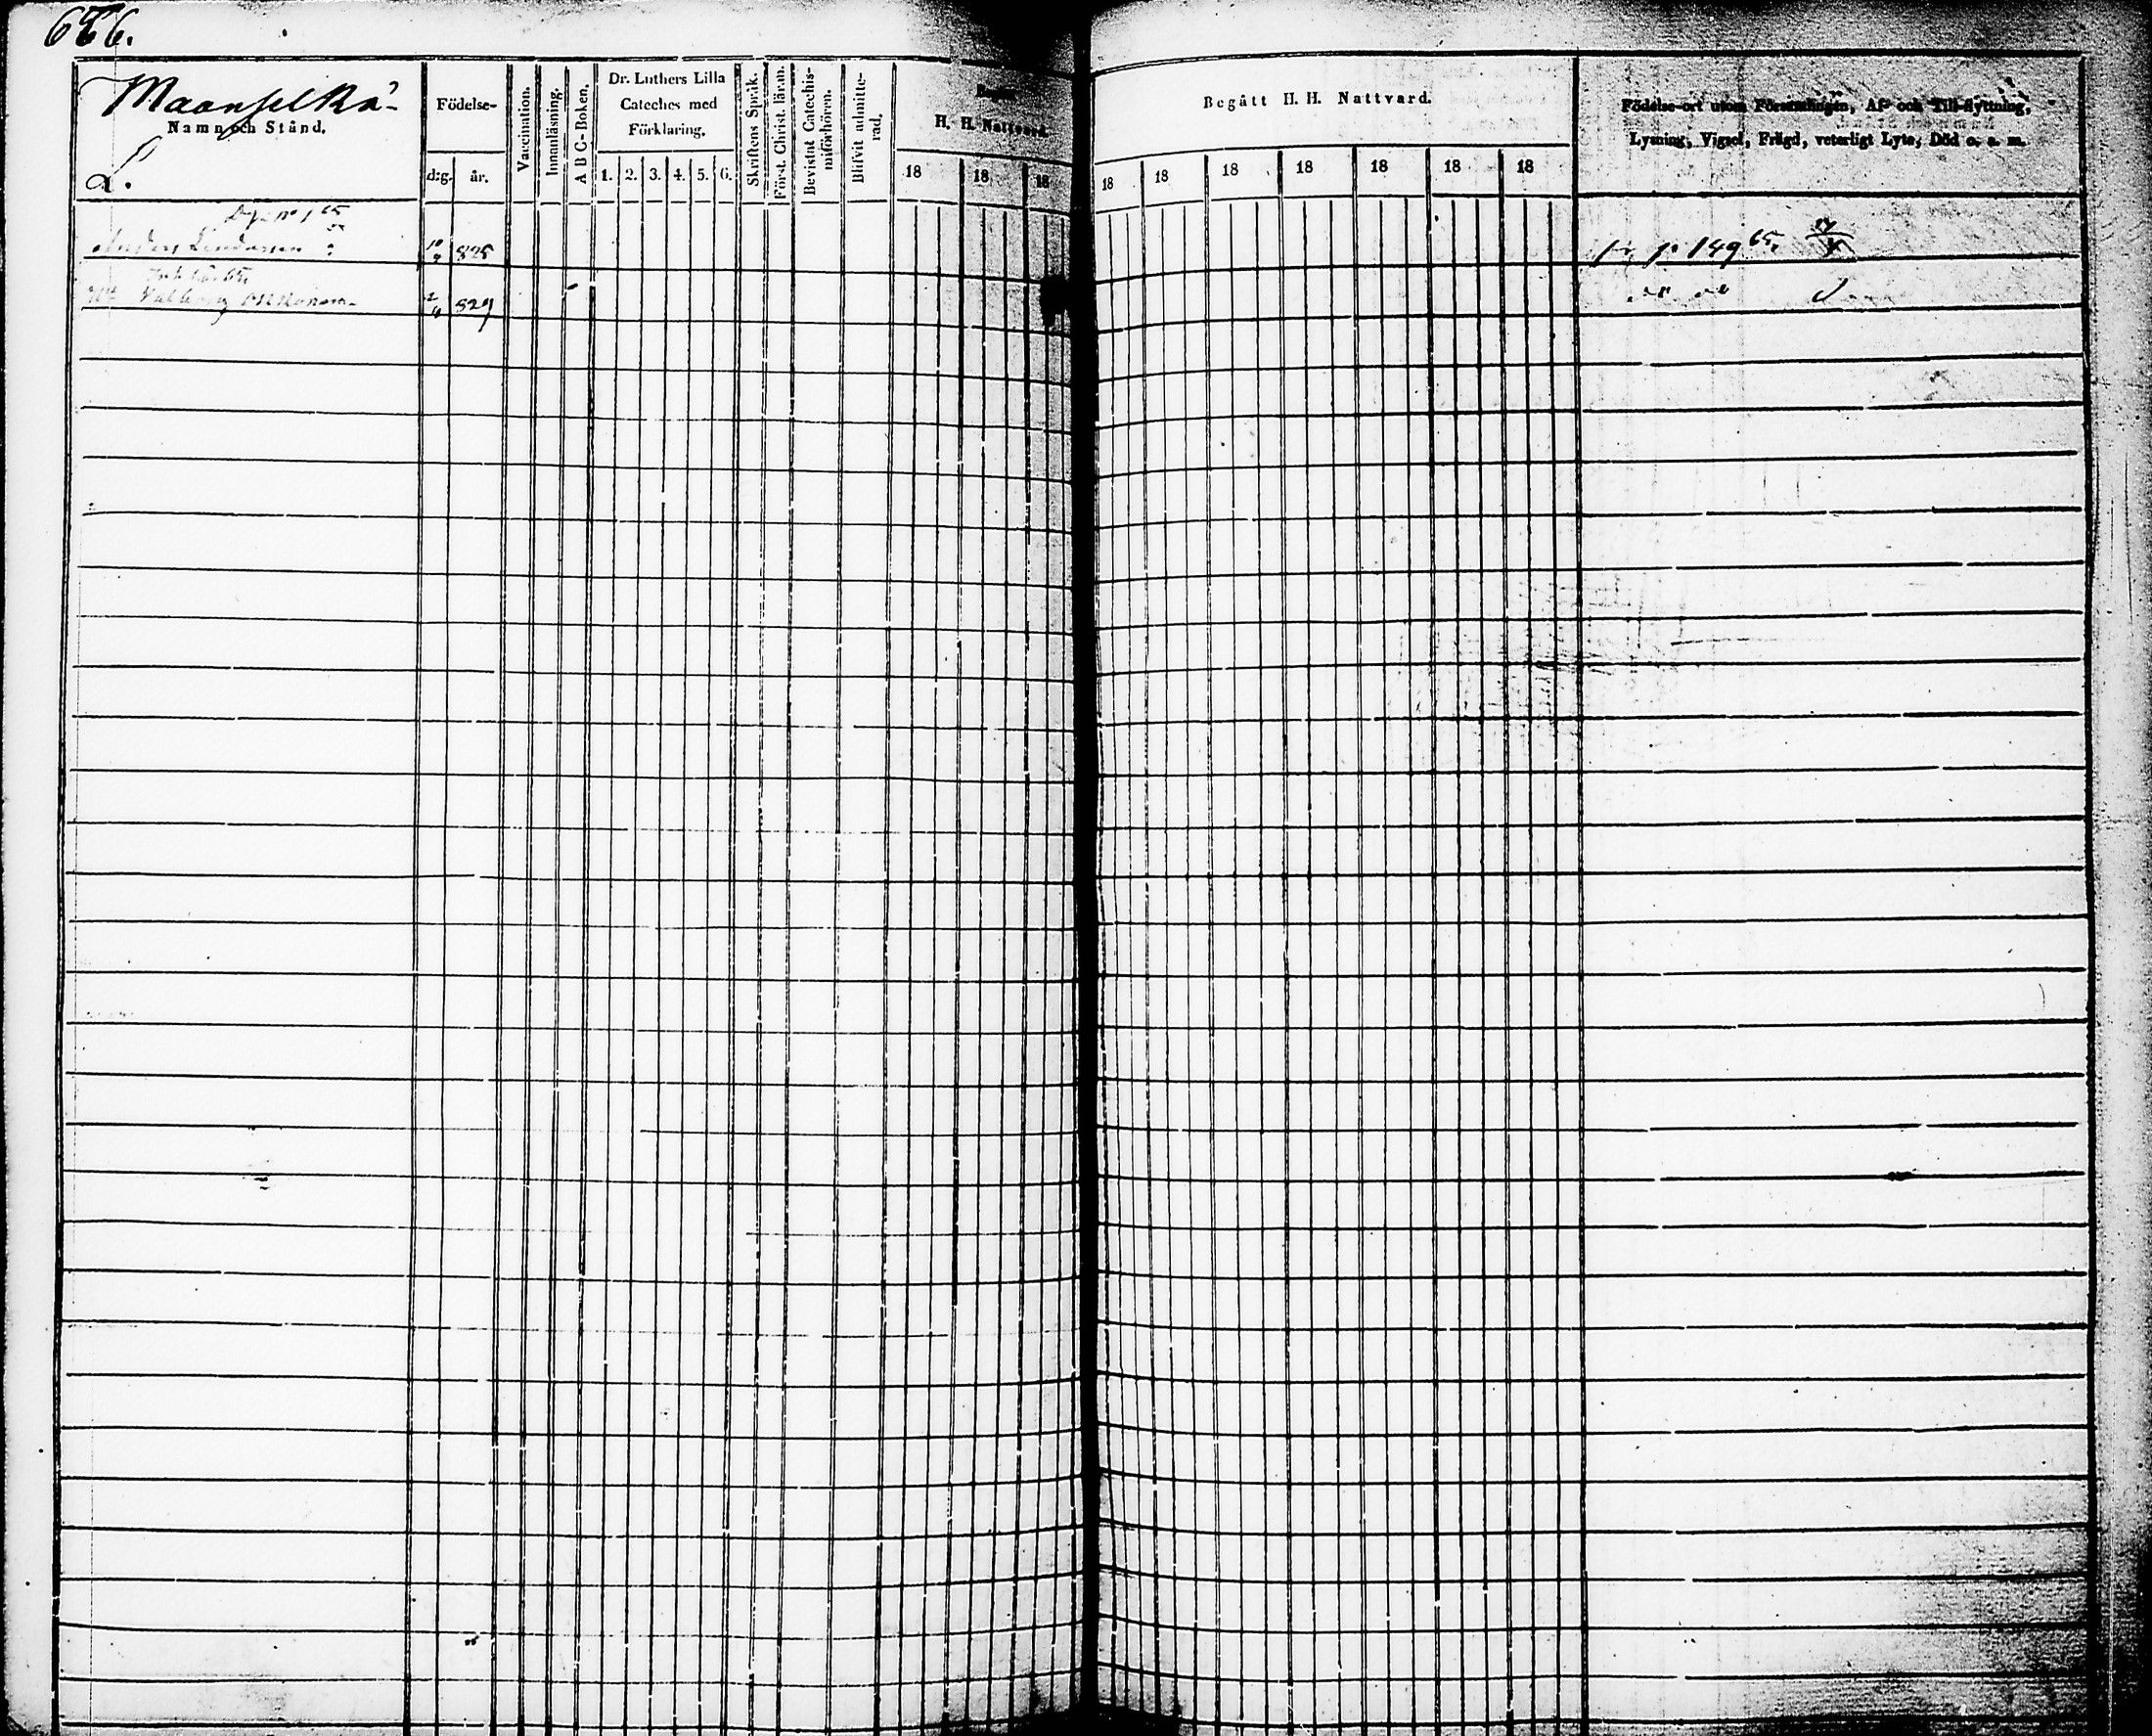 Maanselkä
Namn och Stånd.
L.
Födelse-
d:g. år.
Vaccination.
Innanläsning.
A B C-Boken.
Dr. Luthers Lilla
Cateches med
Förklaring.
1. 2. 3. 4. 5. 6.
Skriftens Språk.
Först. Christ. läran.
Bevistat Catechis-
miförhören.
Blifvit admitte-
rad.
Begått
H. H. Nattvard.
18 18 18
Begått H. H. Nattvard.
18 18 18 18 18 18 18
Födelse-ort utom Församlingen, Af- och Till-flyttning,
Lysning, Vigsel, Frägd, veterligt Lyte, Död o. s. m.
Anders 10/9 825
p. 149 65.
Valborg 2/4 827